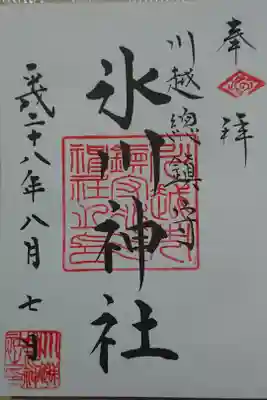 奉拝
川越總鎮守
氷川神社
平成二十八年八月七日